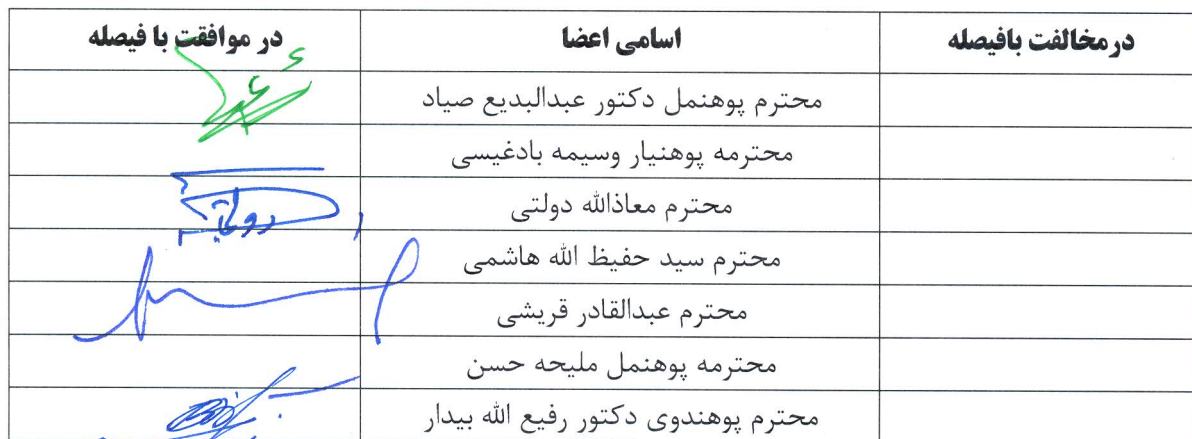 در مخالفت بافیصله اسامی اعضا در موافقت با فیصله
محترم پوهنمل دکتور عبدالبدیع صیاد
محترمه پوهنیار وسیمه بادغیسی
محترم معاذالله دولتی
دولتی
محترم سید حفیظ الله هاشمی
محترم عبدالقادر قریشی
محترمه پوهنمل ملیحه حسن
محترم پوهندوی دکتور رفیع الله بیدار